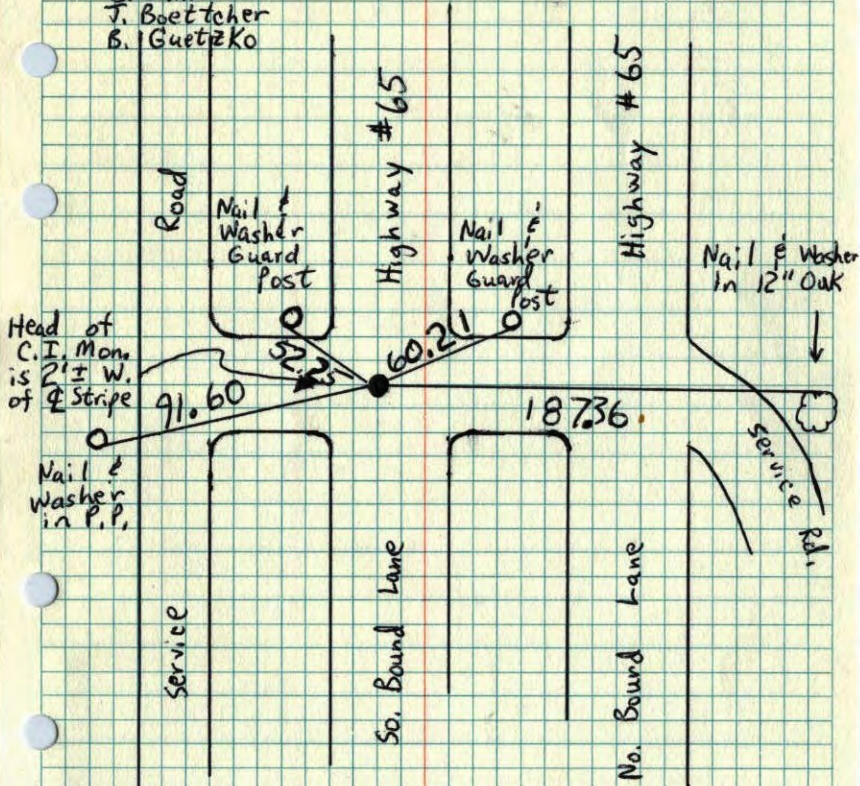 J. Boettcher
B. Guetzko
Road
Nail &
Washer
Guard
Post
Highway #65
Nail &
Washer
Guard
Post
Highway #65
Nail & Washer
In 12" Oak
Head of
C.I. Mon.
is 2'± W.
of ℄ Stripe
52.25
60.21
91.60
187.36
Nail &
Washer
in P.P.
Service Rd.
Service
So. Bound Lane
No. Bound Lane